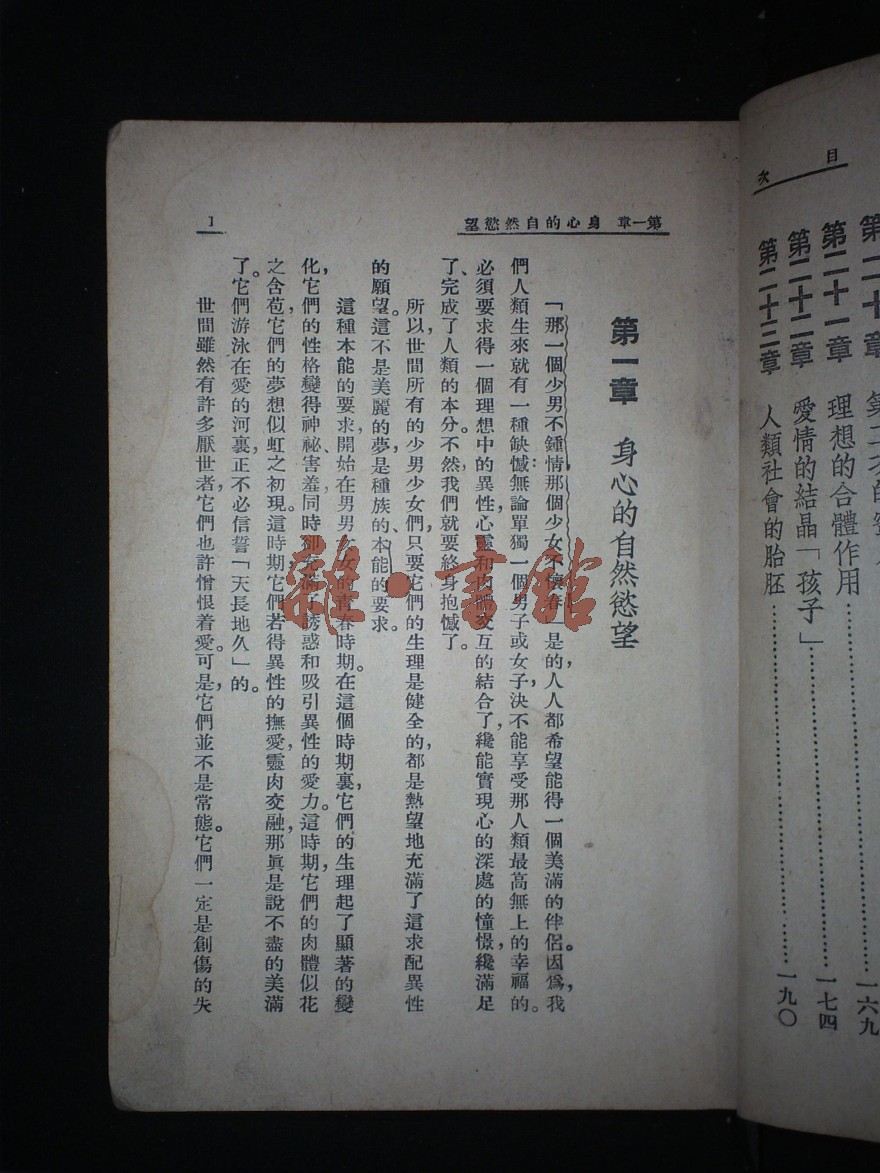 目次
第二十章 第二次的 一六九
第二十一章 理想的合體作用…………一七四
第二十二章 愛情的結晶「孩子」…………
第二十三章 人類社會的胎胚…………一九〇
第一章 身心的自然慾望
1
第一章 身心的自然慾望
「那一個少男不鍾情,那個少女不懷春」是的,人人都希望能得一個美滿的伴侶。因爲,我
們人類生來就有一種缺憾:無論單獨一個男子或女子,決不能享受那人類最高無上的幸福的。
必須要求得一個理想中的異性,心靈和肉體交互的結合了,纔能實現心的深處的憧憬,纔滿足
了、完成了人類的本分。不然,我們就要終身抱憾了。
所以,世間所有的少男、少女們,只要它們的生理是健全的,都是熱望地充滿了這求配異性
的願望。這不是美麗的夢,是種族的、本能的要求。
這種本能的要求,開始在男男女女的青春時期。在這個時期裏,它們的生理起了顯著的變
化,它們的性格變得神祕、害羞,同時卻充滿了誘惑和吸引異性的愛力。這時期,它們的肉體似花
之含苞,它們的夢想似虹之初現。這時期,它們若得異性的撫愛,靈肉交融,那眞是說不盡的美滿
了。它們游泳在愛的河裏,正不必信誓「天長地久」的。
世間雖然有許多厭世者,它們也許憎恨着愛。可是,它們並不是常態。它們一定是創傷的失
雜·書館